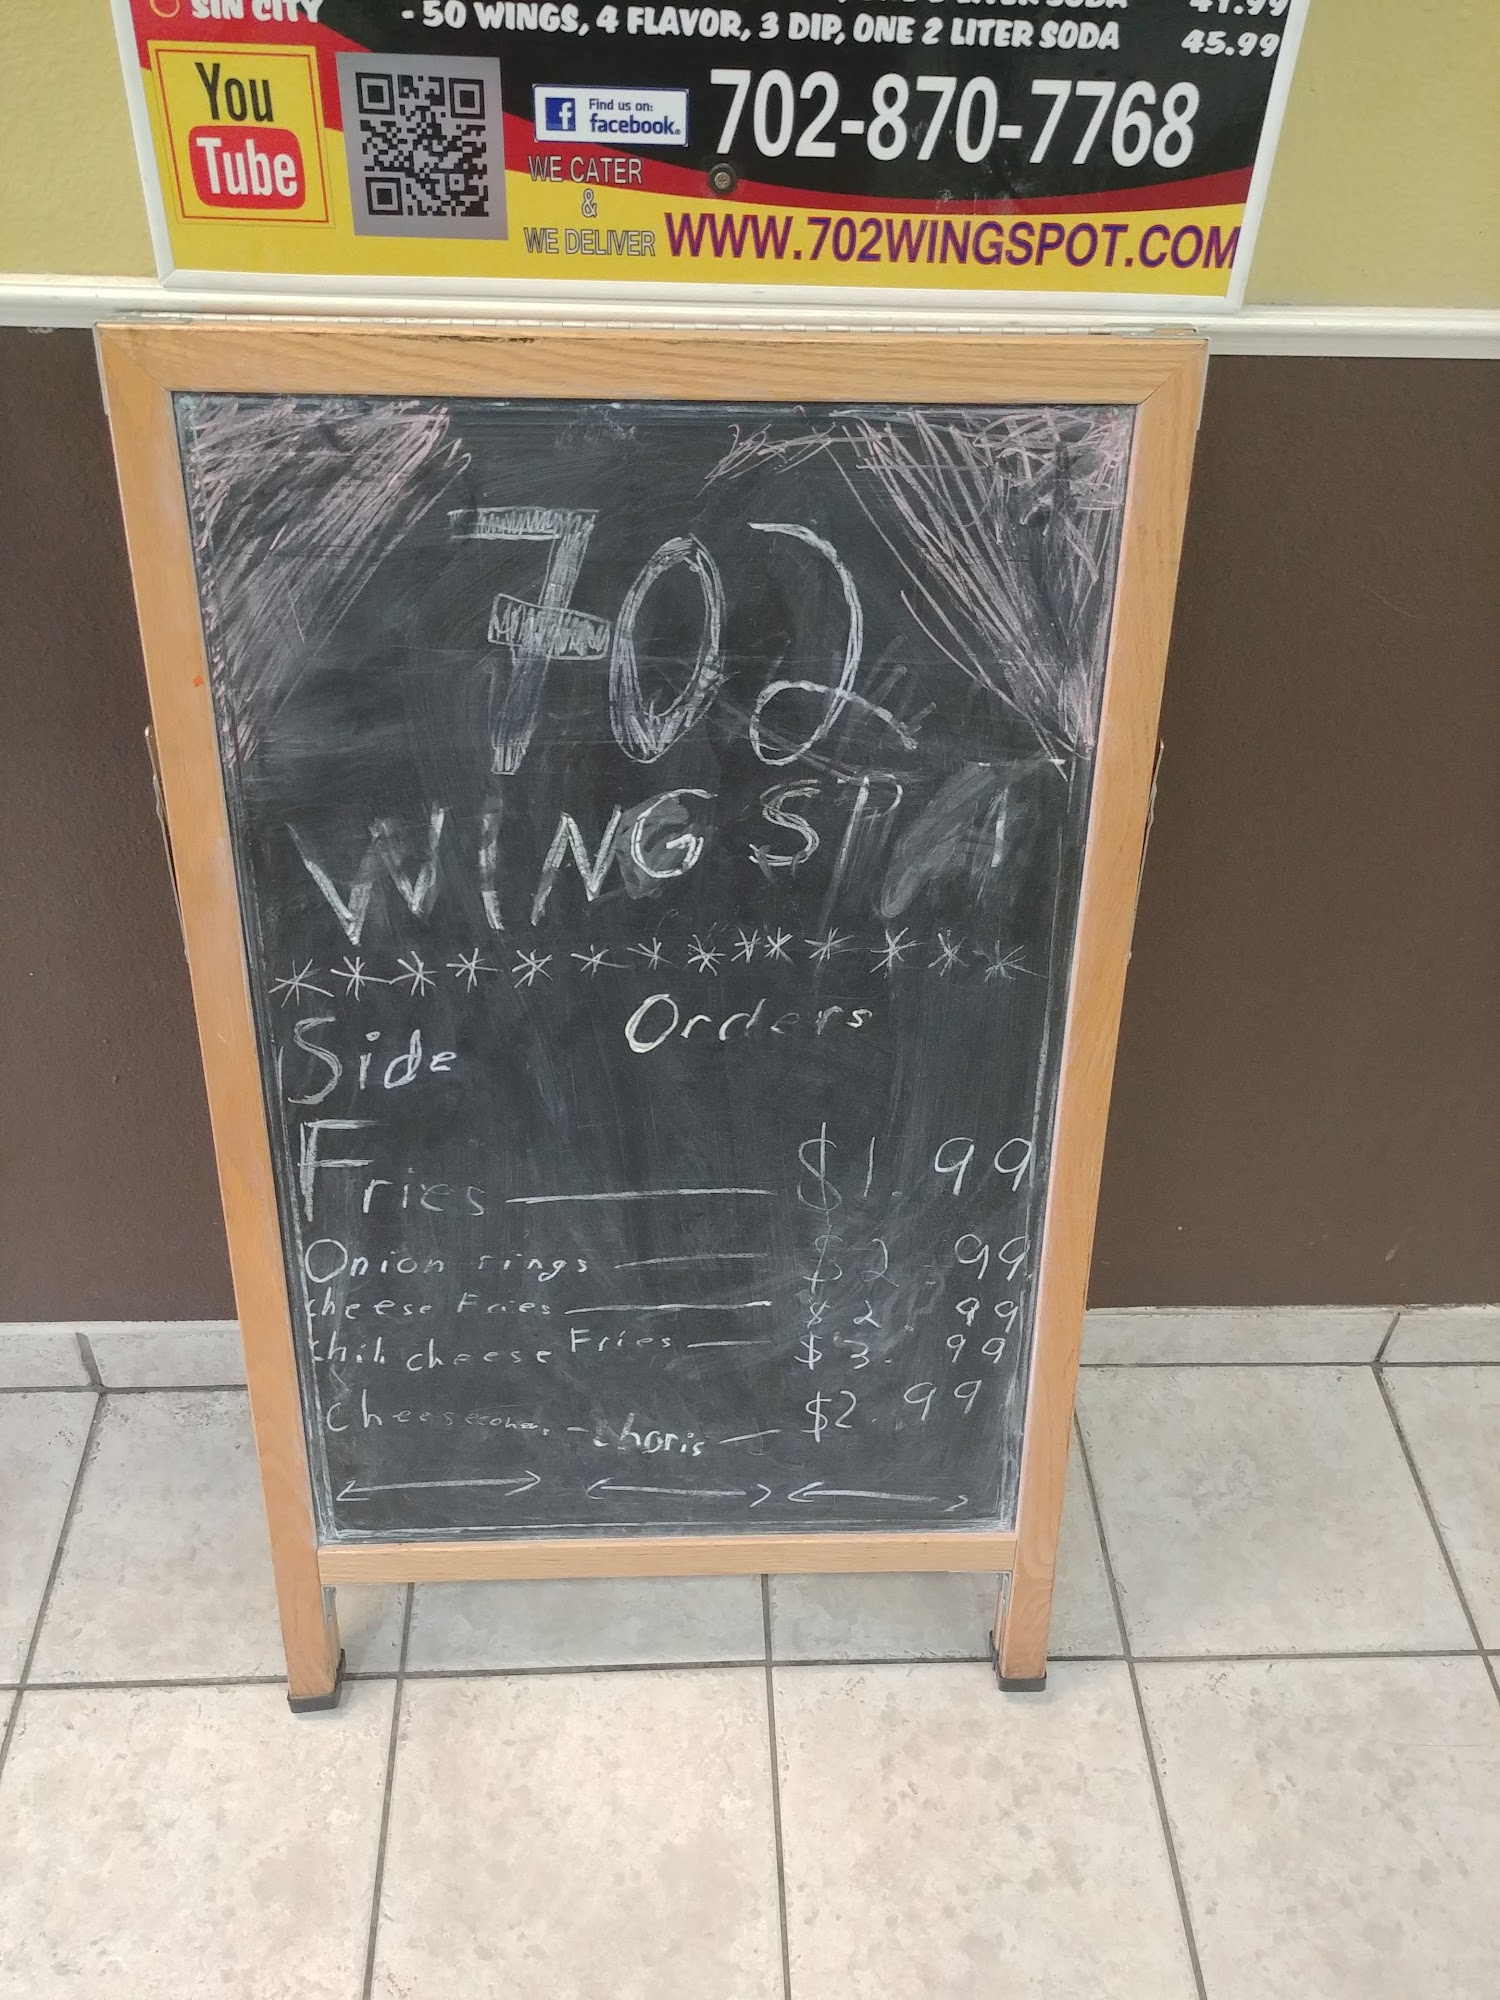 SIN CITY
- 50 WINGS, 4 FLAVOR, 3 DIP, ONE 2 LITER SODA 45.99
You
Tube
Find us on:
facebook.
702-870-7768
WE CATER
&
WE DELIVER
WWW.702WINGSPOT.COM
702
WING SPOT
***************
Side Orders
Fries $1.99
Onion rings $2.99
cheese Fries $2.99
chili cheese Fries $3.99
Cheese $2.99